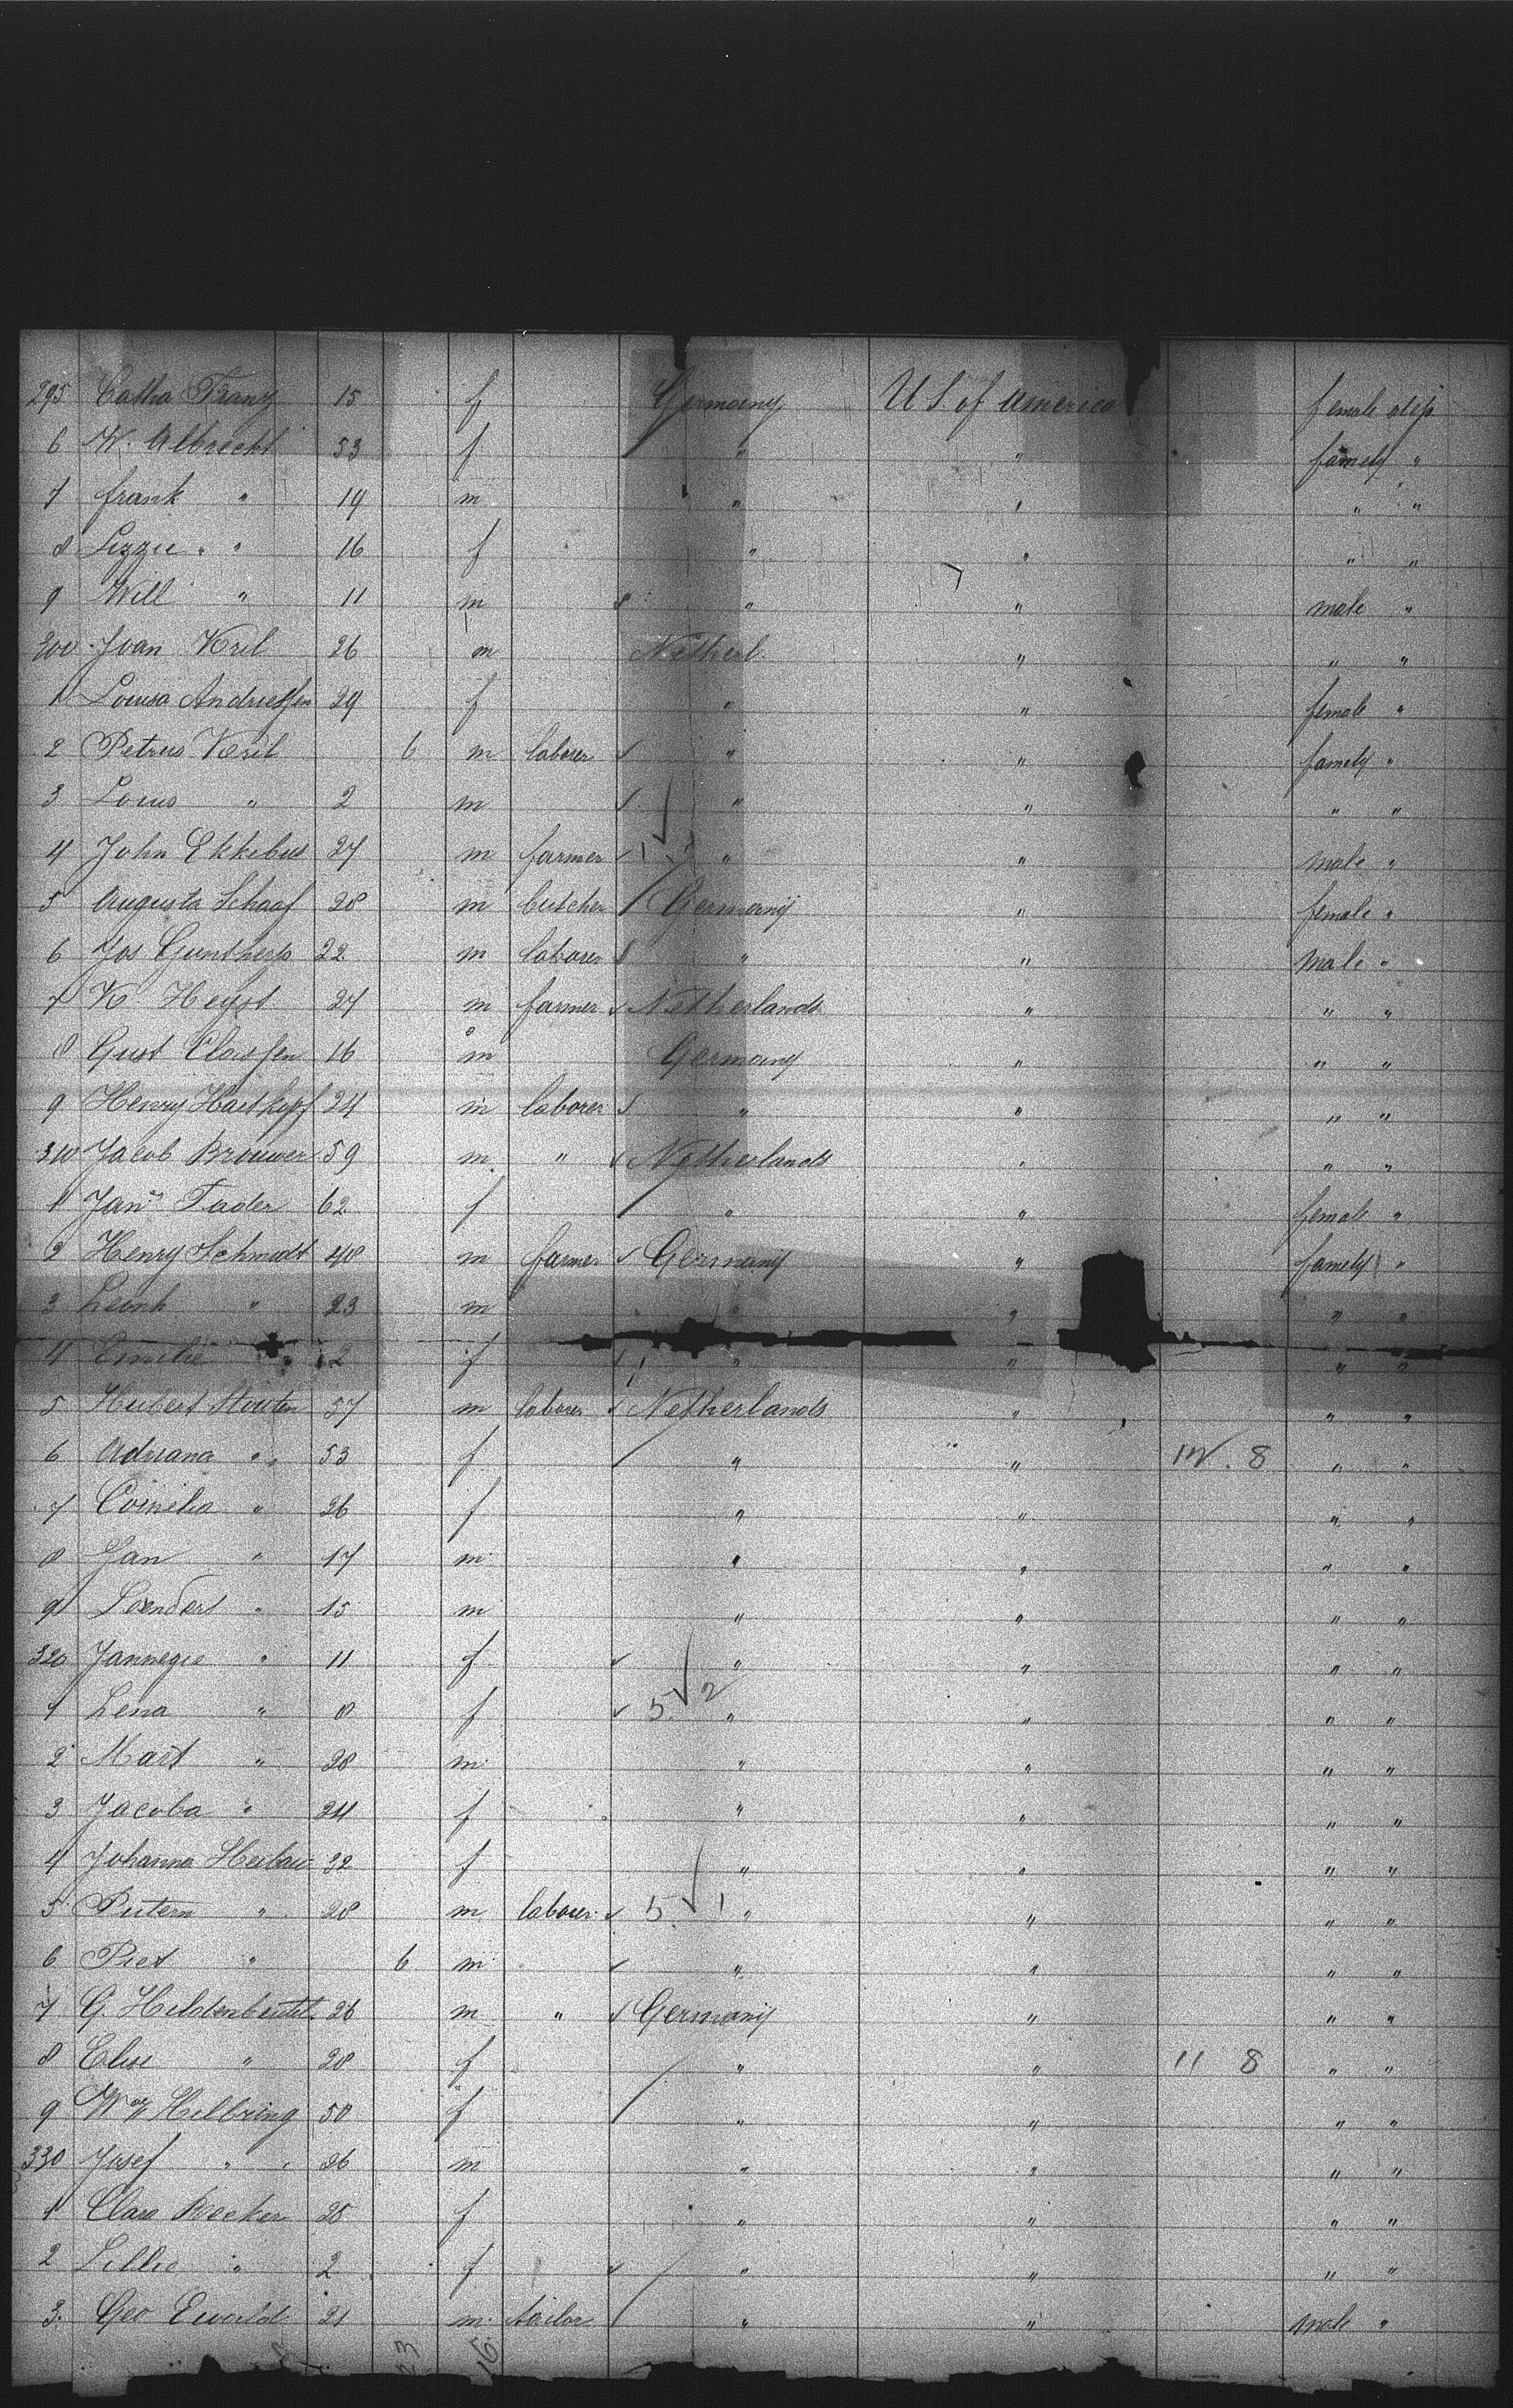 295 Catha Franz 15 f Germany U S. of America female step
6 W. Albrecht 53 f " " famely "
7 frank " 19 m " " " "
8 Lizzie " 16 f " " " "
9 Will " 11 m " " male "
300 Ivan Kril 26 m Netherl. " " "
1 Louisa Andriessen 29 f " " female "
2 Petrus Kril 6 m laborer " " famely "
3 Louis " 2 m " " " "
4 John Ekkebus 27 m farmer 1 " " male "
5 Augusta Schaaf 28 m butcher Germany " female "
6 Jos 22 m laborer " " male "
7 K Heyst 27 m farmer Netherlands " " "
8 Gust Classen 16 m Germany " " "
9 Henry Hartkopf 24 m laborer " " " "
310 Jacob Brouwer 59 m " Netherlands " " "
1 Jana Tader 62 f " " female "
2 Henry Schmidt 48 m farmer Germany " famely "
3 " 23 m " " " "
4 Emilie " 2 f " " " "
5 Hubert Stouten 57 m laborer Netherlands " " "
6 Adriana " 53 f " " 8 " "
7 Cornelia " 26 f " " " "
8 Jan " 17 m " " " "
9 Leendert " 15 m " " " "
320 Jannegie " 11 f " " " "
1 Lena " 8 f 5 2 " " " "
2 Mart " 28 m " " " "
3 Jacoba " 24 f " " " "
4 Johanna 32 f " " " "
5 " 28 m laborer 5 1 " " " "
6 Piet " 6 m " " " "
7 G. Hildenbeutel 26 m " Germany " " "
8 Elise " 28 f " " 11 8 " "
9 Helbring 50 f " " " "
330 Josef " 26 m " " " "
1 Clara Becker 25 f " " " "
2 Lillie " 2 f " " " "
3 Geo Ewald 21 m tailor " " male "
23 16